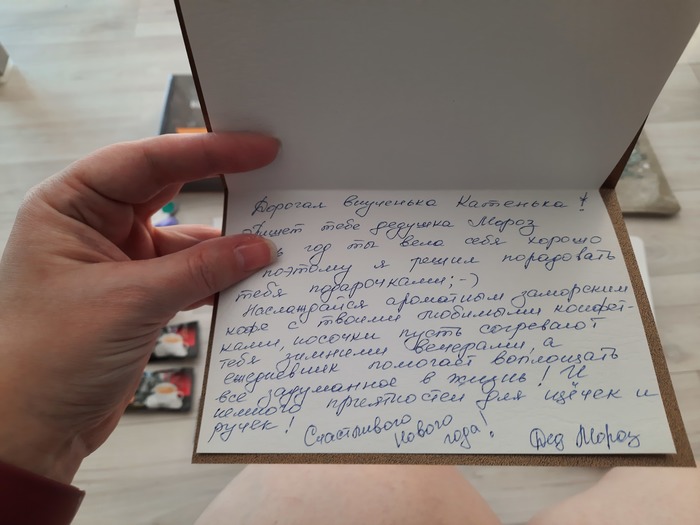 Дорогая внученька Катенька!
Пишет тебе дедушка Мороз
год ты вела себя хорошо
поэтому я решил порадовать
тебя подарочками ;-)
Наслаждайся ароматным заморским
кофе с твоими любимыми конфет-
ками, носочки пусть согревают
тебя зимними вечерами, а
ежедневник помогает воплощать
все задуманное в жизнь! И
немного приятностей для щёчек и
ручек!
Счастливого
Нового
года!
Дед Мороз